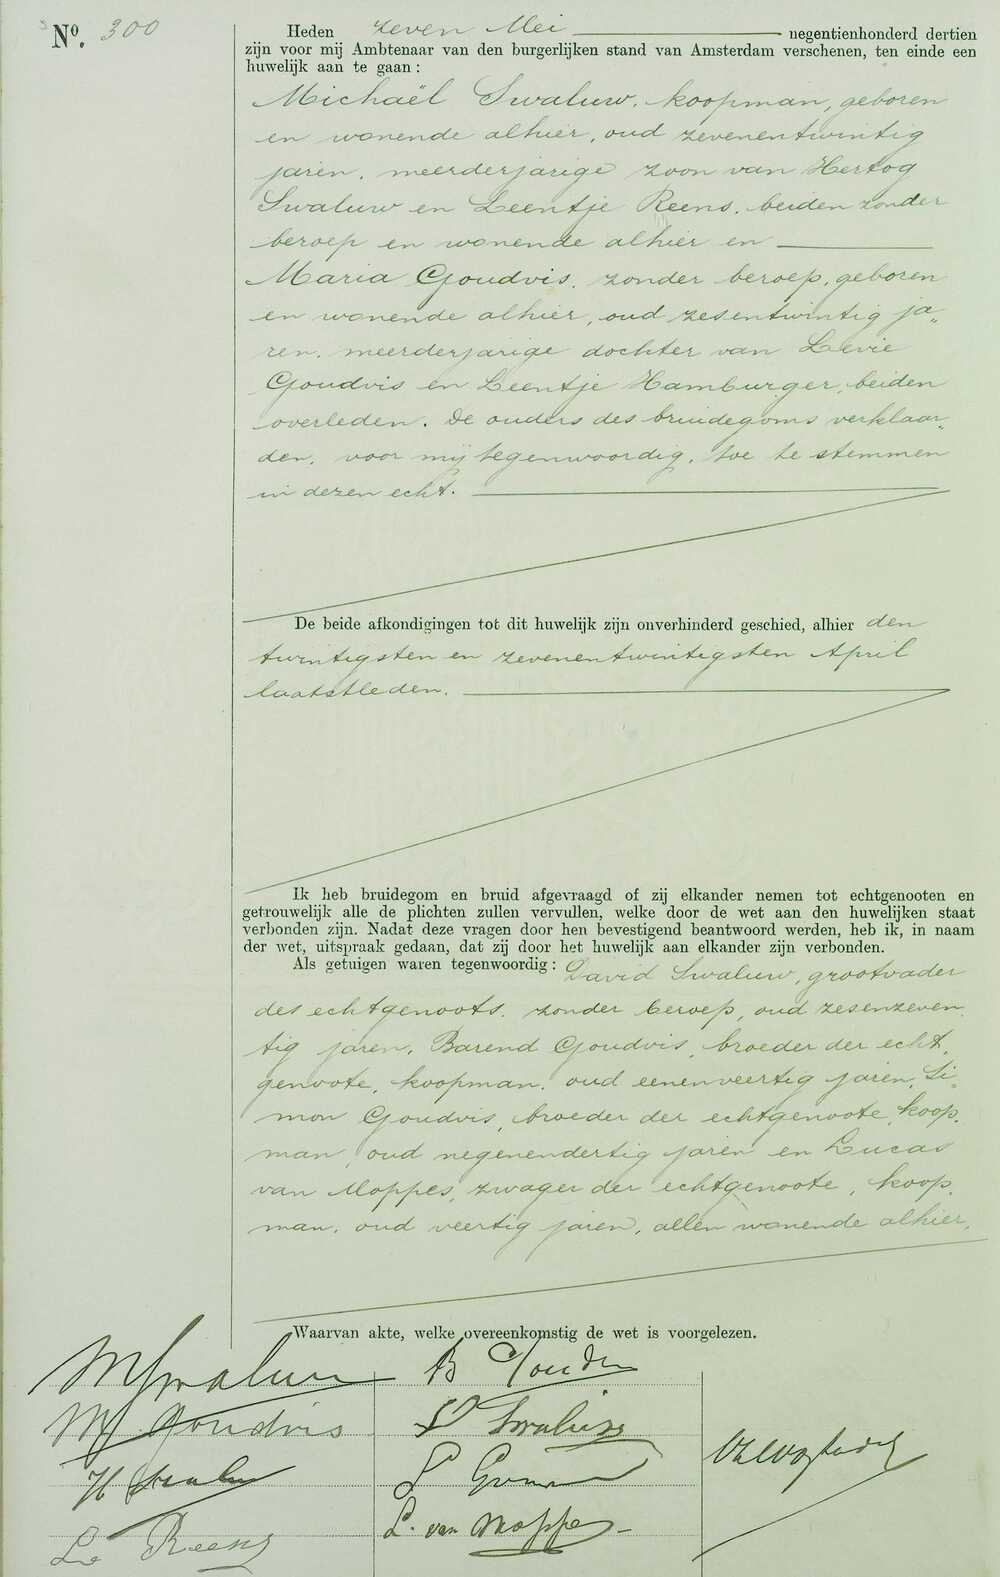 No. 300
Heden zeven Mei negentienhonderd dertien
zijn voor mij Ambtenaar van den burgerlijken stand van Amsterdam verschenen, ten einde een
huwelijk aan te gaan:
Michaël Swaluw, koopman, geboren
en wonende alhier, oud zevenentwintig
jaren, meerderjarige zoon van Hertog
Swaluw en Leentje Reens, beiden zonder
beroep en wonende alhier en
Maria Goudvis, zonder beroep, geboren
en wonende alhier, oud zesentwintig ja„
ren, meerderjarige dochter van Levie
Goudvis en Leentje Hamburger, beiden
overleden. De ouders des bruidegoms verklaar„
den, voor mij tegenwoordig, toe te stemmen
in dezen echt.
De beide afkondigingen tot dit huwelijk zijn onverhinderd geschied, alhier den
twintigsten en zevenentwintigsten April
laatstleden.
Ik heb bruidegom en bruid afgevraagd of zij elkander nemen tot echtgenooten en
getrouwelijk alle de plichten zullen vervullen, welke door de wet aan den huwelijken staat
verbonden zijn. Nadat deze vragen door hen bevestigend beantwoord werden, heb ik, in naam
der wet, uitspraak gedaan, dat zij door het huwelijk aan elkander zijn verbonden.
Als getuigen waren tegenwoordig: David Swaluw, grootvader
des echtgenoots, zonder beroep, oud zesenzeven„
tig jaren, Barend Goudvis, broeder der echt„
genoote, koopman, oud eenenveertig jaren, Si„
mon Goudvis, broeder der echtgenoote, koop„
man, oud negenendertig jaren en Lucas
van Moppes, zwager der echtgenoote, koop„
man, oud veertig jaren, allen wonende alhier.
Waarvan akte, welke overeenkomstig de wet is voorgelezen.
M Swaluw
B Goudvis
M Goudvis
D Swaluw
H Swaluw
S Goudvis
Le Reens
L. van Moppes